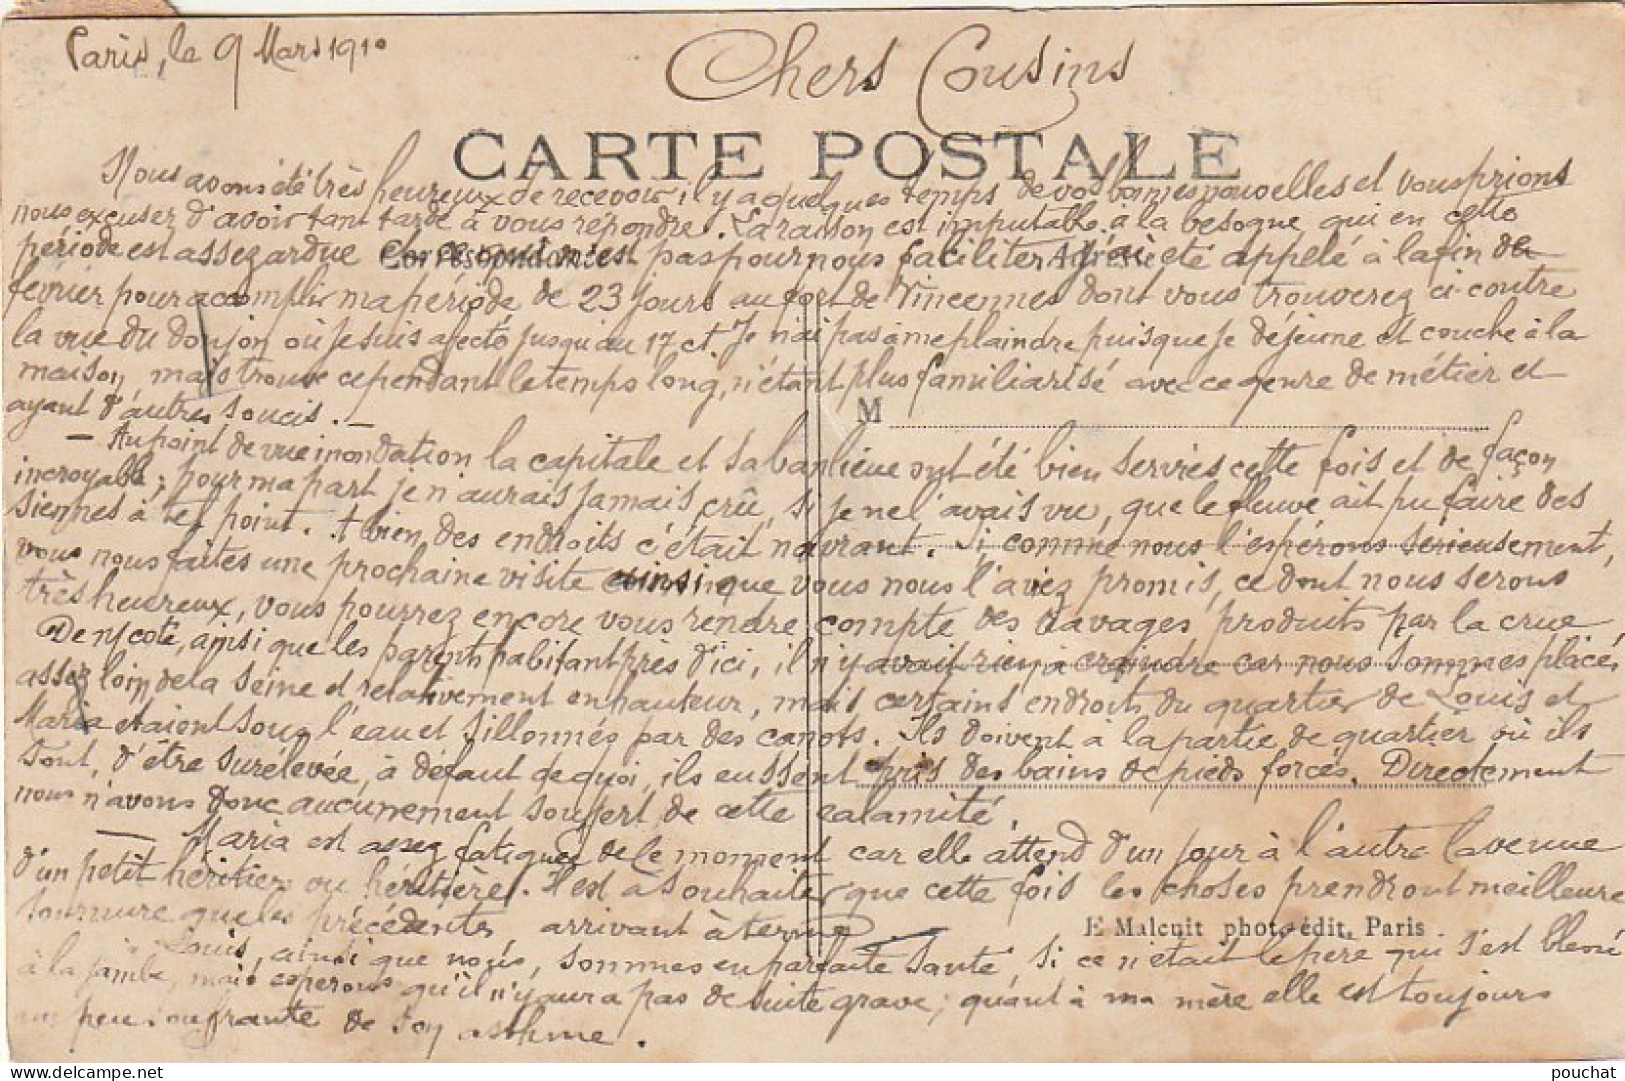 Paris, le 9 Mars 1910
Chers Cousins
CARTE POSTALE
Nous avons été très heureux de recevoir il y a quelques temps de vos bonnes nouvelles et vous prions
nous excuser d'avoir tant tardé à vous répondre. La raison est imputable à la besogne qui en cette
période est assez ardue
Correspondance
Adresse
ce qui n'est pas pour nous faciliter. J'ai été appelé à la fin de
février pour accomplir ma période de 23 jours au fort de Vincennes dont vous trouverez ci-contre
la vue du donjon où je suis afecté jusqu'au 17 ct. Je n'ai pas à me plaindre puisque je déjeune et couche à la
maison, mais trouve cependant le temps long, n'étant plus familiarisé avec ce genre de métier et
ayant d'autres soucis. —
M
— Au point de vue inondation la capitale et sa banlieue ont été bien servies cette fois et de façon
incroyable; pour ma part je n'aurais jamais crû, si je ne l'avais vu, que le fleuve ait pu faire des
siennes à tel point. A bien des endroits c'était navrant. Si comme nous l'espérons sérieusement,
vous nous faites une prochaine visite ainsi que vous nous l'avez promis, ce dont nous serons
très heureux, vous pourrez encore vous rendre compte des ravages produits par la crue
De n/ coté, ainsi que les parents habitant près d'ici, il n'y avait rien à craindre car nous sommes placés
assez loin de la Seine et relativement en hauteur, mais certains endroits du quartier de Louis et
Maria etaient sous l'eau et sillonnés par des canots. Ils doivent à la partie de quartier où ils
sont, d'être surélevée, à défaut de quoi, ils eussent pris des bains de pieds forcés. Directement
nous n'avons donc aucunement soufert de cette calamité.
— Maria est assez fatiguée de le moment car elle attend d'un jour à l'autre la venue
d'un petit héritier ou héritière. Il est à souhaiter que cette fois les choses prendront meilleure
tournure que les précédentes arrivant à terme.
E Malcuit phot. édit. Paris
Louis, ainsi que nous, sommes en parfaite santé, si ce n'était le père qui s'est blessé
à la jambe, mais esperons qu'il n'y aura pas de suite grave; quant à ma mère elle est toujours
un peu soufrante de son asthme.
pouchat